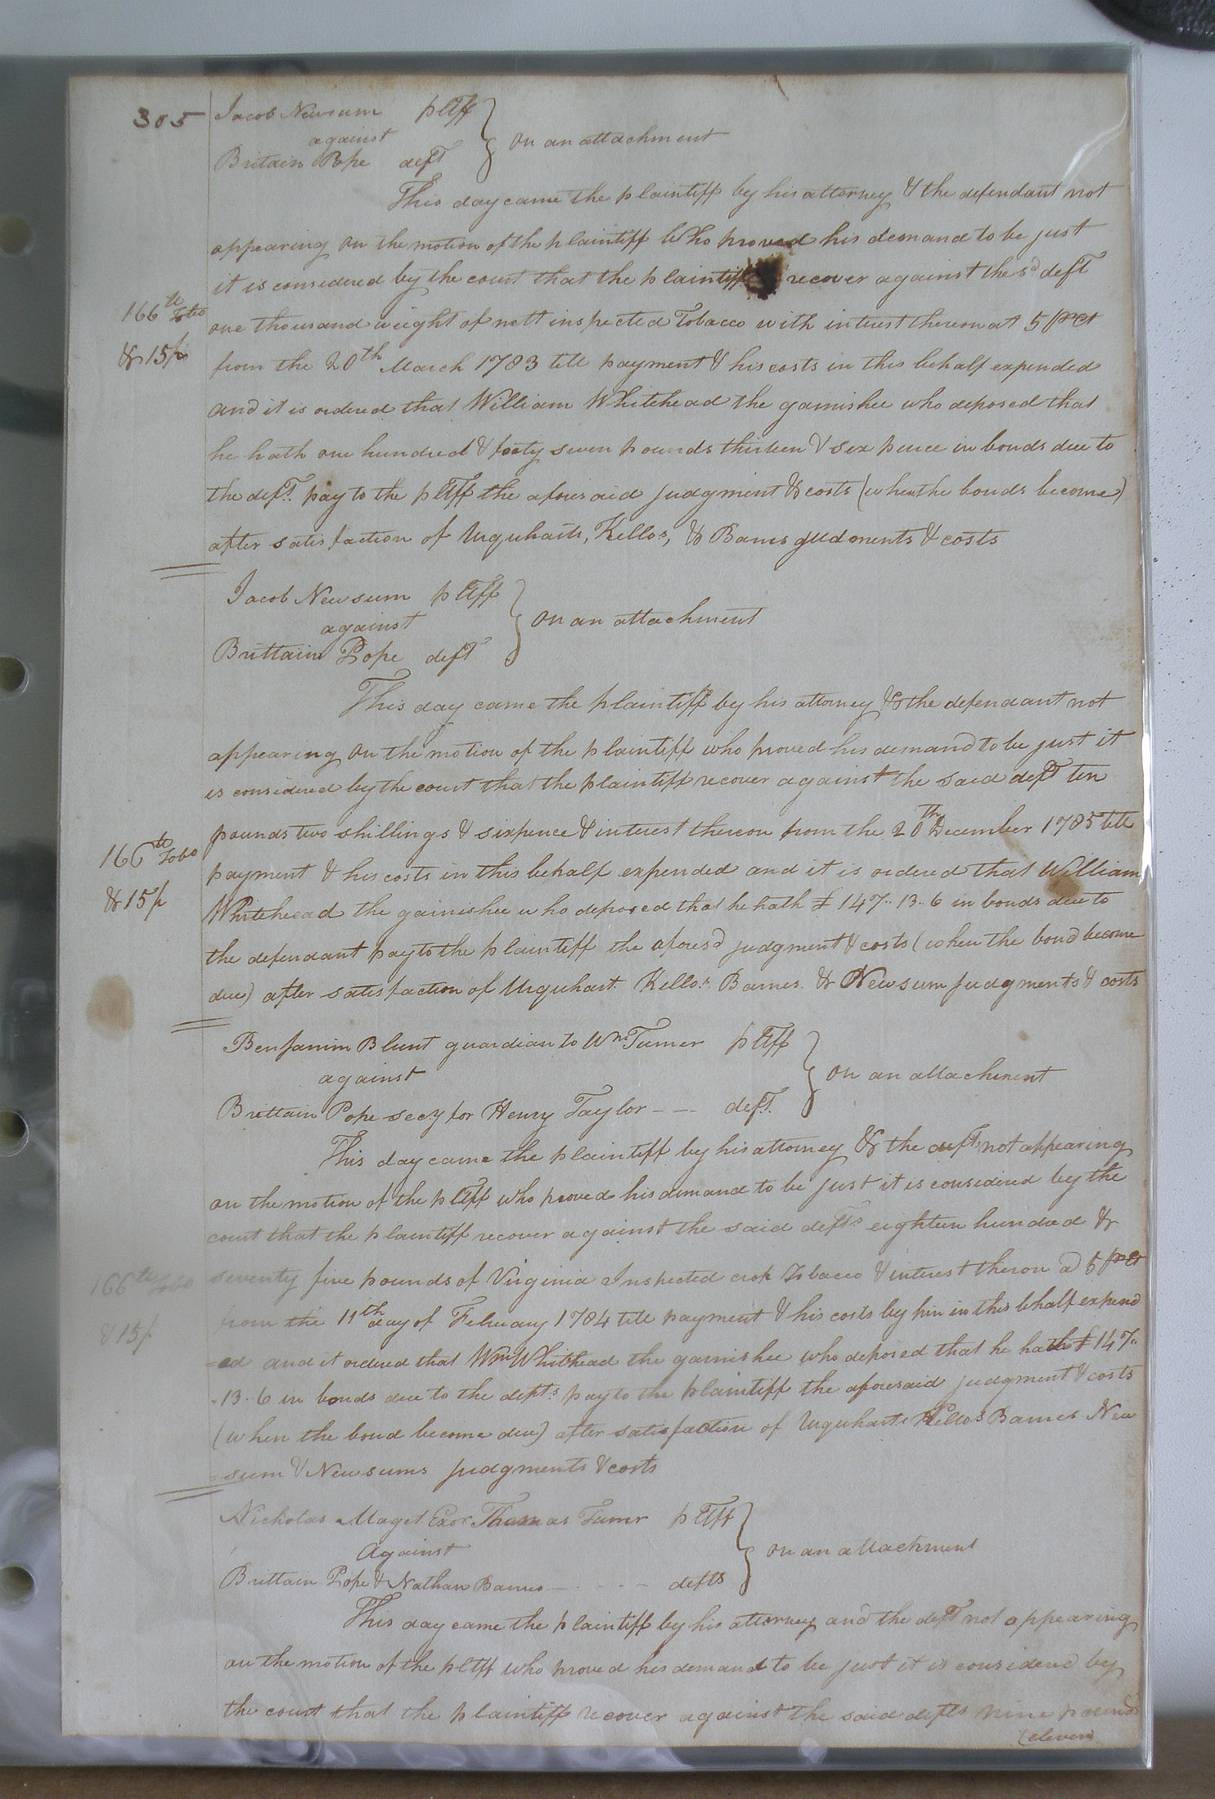 305
Jacob Newsum pltff
against
Britain Pope deft
On an attachment
This day came the plaintiff by his attorney & the defendant not
appearing On the motion of the plaintiff Who proved his demand to be just
it is considered by the court that the plaintiff recover against the sd deft
166 tb Tobo
one thousand weight of nett inspected Tobacco with interest thereon at 5 pr Ct
& 15/
from the 20th March 1783 till payment & his costs in this behalf expended
and it is ordered that William Whitehead the garnishee who deposed that
he hath one hundred & forty seven pounds thirteen & six pence in bonds due to
the deft. pay to the pltff the aforesaid judgment & costs (when the bonds become)
after satisfaction of Urquharts, Kellos, & Barnes judgments & costs
Jacob Newsum pltff
against
Brittain Pope deft
On an attachment
This day came the plaintiff by his attorney & the defendant not
appearing On the motion of the plaintiff who proved his demand to be just it
is considered by the court that the plaintiff recover against the said deft ten
pounds two shillings & sixpence & interest thereon from the 20th December 1785 till
166 tb Tobo
payment & his costs in this behalf expended and it is ordered that William
& 15/
Whitehead the garnishee who deposed that he hath £ 147.. 13. 6 in bonds due to
the defendant pay to the plaintiff the aforesd judgment & costs (when the bond become
due) after satisfaction of Urquhart. Kellos. Barnes. & Newsum judgments & costs
Benjamin Blunt guardian to Wm Turner pltff
against
Brittain Pope secy for Henry Taylor -- deft.
On an attachment
This day came the plaintiff by his attorney & the defts not appearing
on the motion of the pltff who proved his demand to be just it is considered by the
court that the plaintiff recover against the said defts eighteen hundred &
166 tb Tobo
seventy five pounds of Virginia Inspected crop Tobacco & interest thereon a 5 pr Ct
& 15/
from the 11th day of February 1784 till payment & his costs by him in this behalf expend
-ed and it ordered that Wm Whitehead the garnishee who deposed that he hath £ 147..
.13. 6 in bonds due to the defts pay to the plaintiff the aforesaid judgment & costs
(when the bond become due) after satisfaction of Urquharts Kellos Barnes New
=sum & Newsums judgments & costs
Nicholas Maget Exor Thomas Turner pltff
Against
Brittain Pope & Nathan Barnes - - - - defts
On an attachment
This day came the plaintiff by his attorney and the deft not appearing
on the motion of the pltff who proved his demand to be just it is considered by
the court that the plaintiff recover against the said defts nine pounds
(eleven